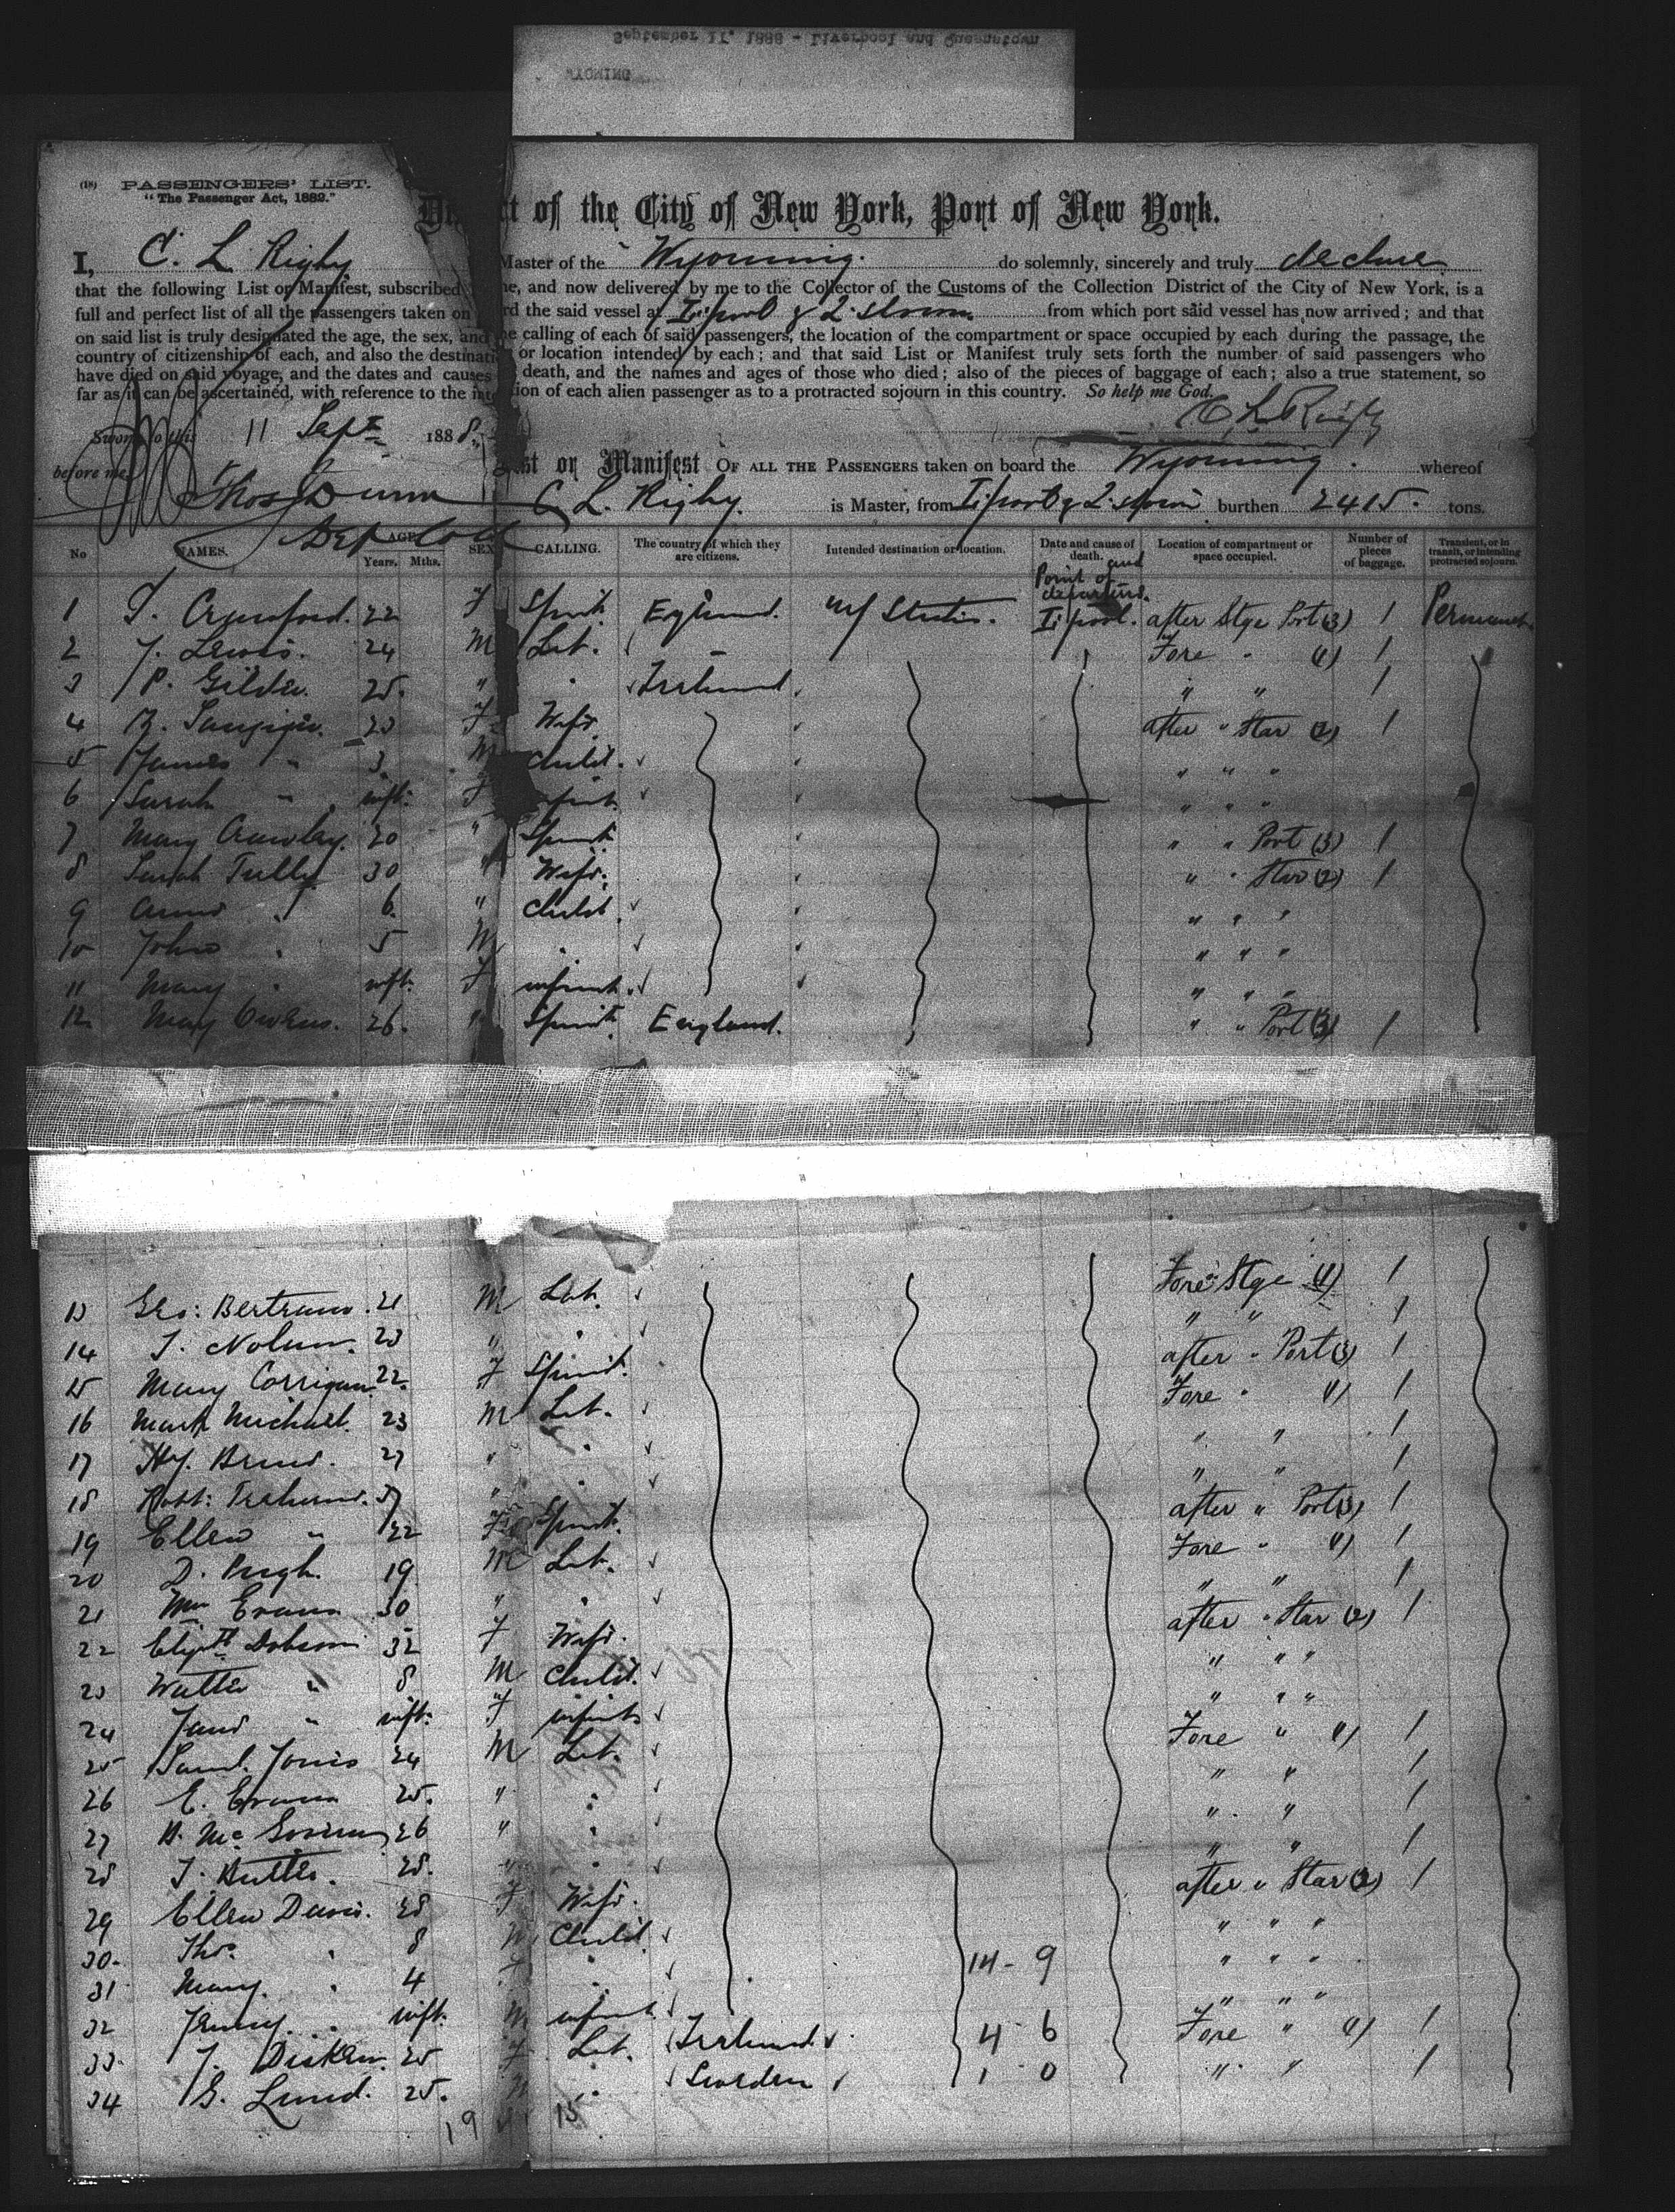 September 11. 1888 - Liverpool and Queenstown
WYOMING
(18) PASSENGERS' LIST.
"The Passenger Act, 1882."
ct of the City of New York, Port of New York.
I, C. L Rigby Master of the Wyoming. do solemnly, sincerely and truly declare
that the following List or Manifest, subscribed me, and now delivered by me to the Collector of the Customs of the Collection District of the City of New York, is a
full and perfect list of all the passengers taken on rd the said vessel at L'pool & Q. stown from which port said vessel has now arrived; and that
on said list is truly designated the age, the sex, and the calling of each of said passengers, the location of the compartment or space occupied by each during the passage, the
country of citizenship of each, and also the destination or location intended by each; and that said List or Manifest truly sets forth the number of said passengers who
have died on said voyage, and the dates and causes death, and the names and ages of those who died; also of the pieces of baggage of each; also a true statement, so
far as it can be ascertained, with reference to the tion of each alien passenger as to a protracted sojourn in this country. So help me God.
C L Rigby
Sworn to this 11 Sept 1888.
before me
st or Manifest OF ALL THE PASSENGERS taken on board the Wyoming. whereof
Thos Dunn C. L. Rigby. is Master, from L'pool & Q. stown burthen 2415. tons.
Dep Coll
No NAMES. AGE Years. Mths. SEX CALLING. The country of which they are citizens. Intended destination or location. Date and cause of death. Location of compartment or space occupied. Number of pieces of baggage. Transient, or in transit, or intending protracted sojourn.
and Point of departure.
1 S. Crawford. 22 F Spinst. England. U States. L'pool. after Stge Port (3) 1 Permanent.
2 J. Lewis. 24 M Lab. - Fore " (1) 1
3 P. 25. " " Ireland. " " 1
4 23 F Wife. " after " Star (2) 1
5 James " 3 M Child. " " " "
6 Sarah " inft. F infnt. " " " "
7 Mary Crawley. 20 " Spinst. " " " Port (3) 1
8 Sarah Tully 30 " Wife. " " " Star (2) 1
9 Annie " 6. " Child. " " " "
10 John " 5 M " " " " "
11 Mary " inft. F infant. " " " "
12 Mary Owens. 26. " Spinst. England. " " Port (3) 1
13 Geo: Bertram. 21 M Lab. Fore Stge (1) 1
14 T. Nolan. 23 " " " " 1
15 Mary Corrigan. 22. F Spinst. after " Port (3) 1
16 Mark Michael. 23 M Lab. Fore " (1) 1
17 Hy. 27 " " " " 1
18 Robt: 57 " " " " 1
19 Ellen " 22 F Spinst. after " Port (3) 1
20 D. Pugh. 19 M Lab. Fore " (1) 1
21 Wm Evans 30 " " " " 1
22 Elizth Dobson 32 F Wife. after " Star (2) 1
23 Walter " 8 M Child. " " "
24 Jane " inft. F infant " " "
25 Saml. Jones 24 M Lab. Fore " (1) 1
26 E. Evans 25. " " " " 1
27 Mc Govern 26 " " " " 1
28 T. Butler. 28. " " " " 1
29 Ellen Davis. 28 F Wife. after " Star (2) 1
30. Thos. " 8 M Child. " " "
31 Mary. " 4 F " 14 - 9 " " "
32 " inft. M infant. " " "
33. J. 25 F Lab. Ireland 4 6 Fore " (1) 1
34 G. Lund. 25. M " Sweden 1 0 " " 1
19 15